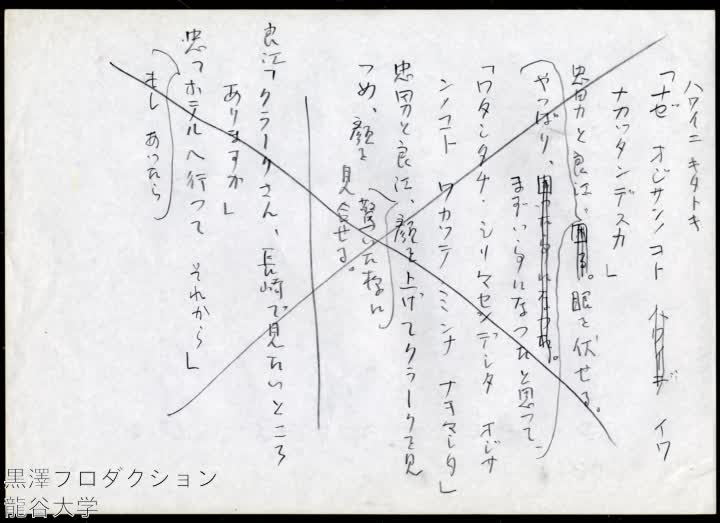 ハワイニ キタトキ
「ナゼ オジサンノコト イワ
ナカッタンデスカ」
忠男と良江、困る。眼を伏せる。
やっぱり、
まずい事になったと思って、
「ワタシタチ シリマセンデシタ オジサ
ンノコト ワカッテ ミンナ ナキマシタ」
忠男と良江、顔を上げてクラークを見
つめ、顔を見合せる。
驚いた様に
良江「クラークさん、長崎で見たいところ
ありますか」
忠「ホテルへ行って それから」
もし あいたら
黒澤プロダクション
龍谷大学